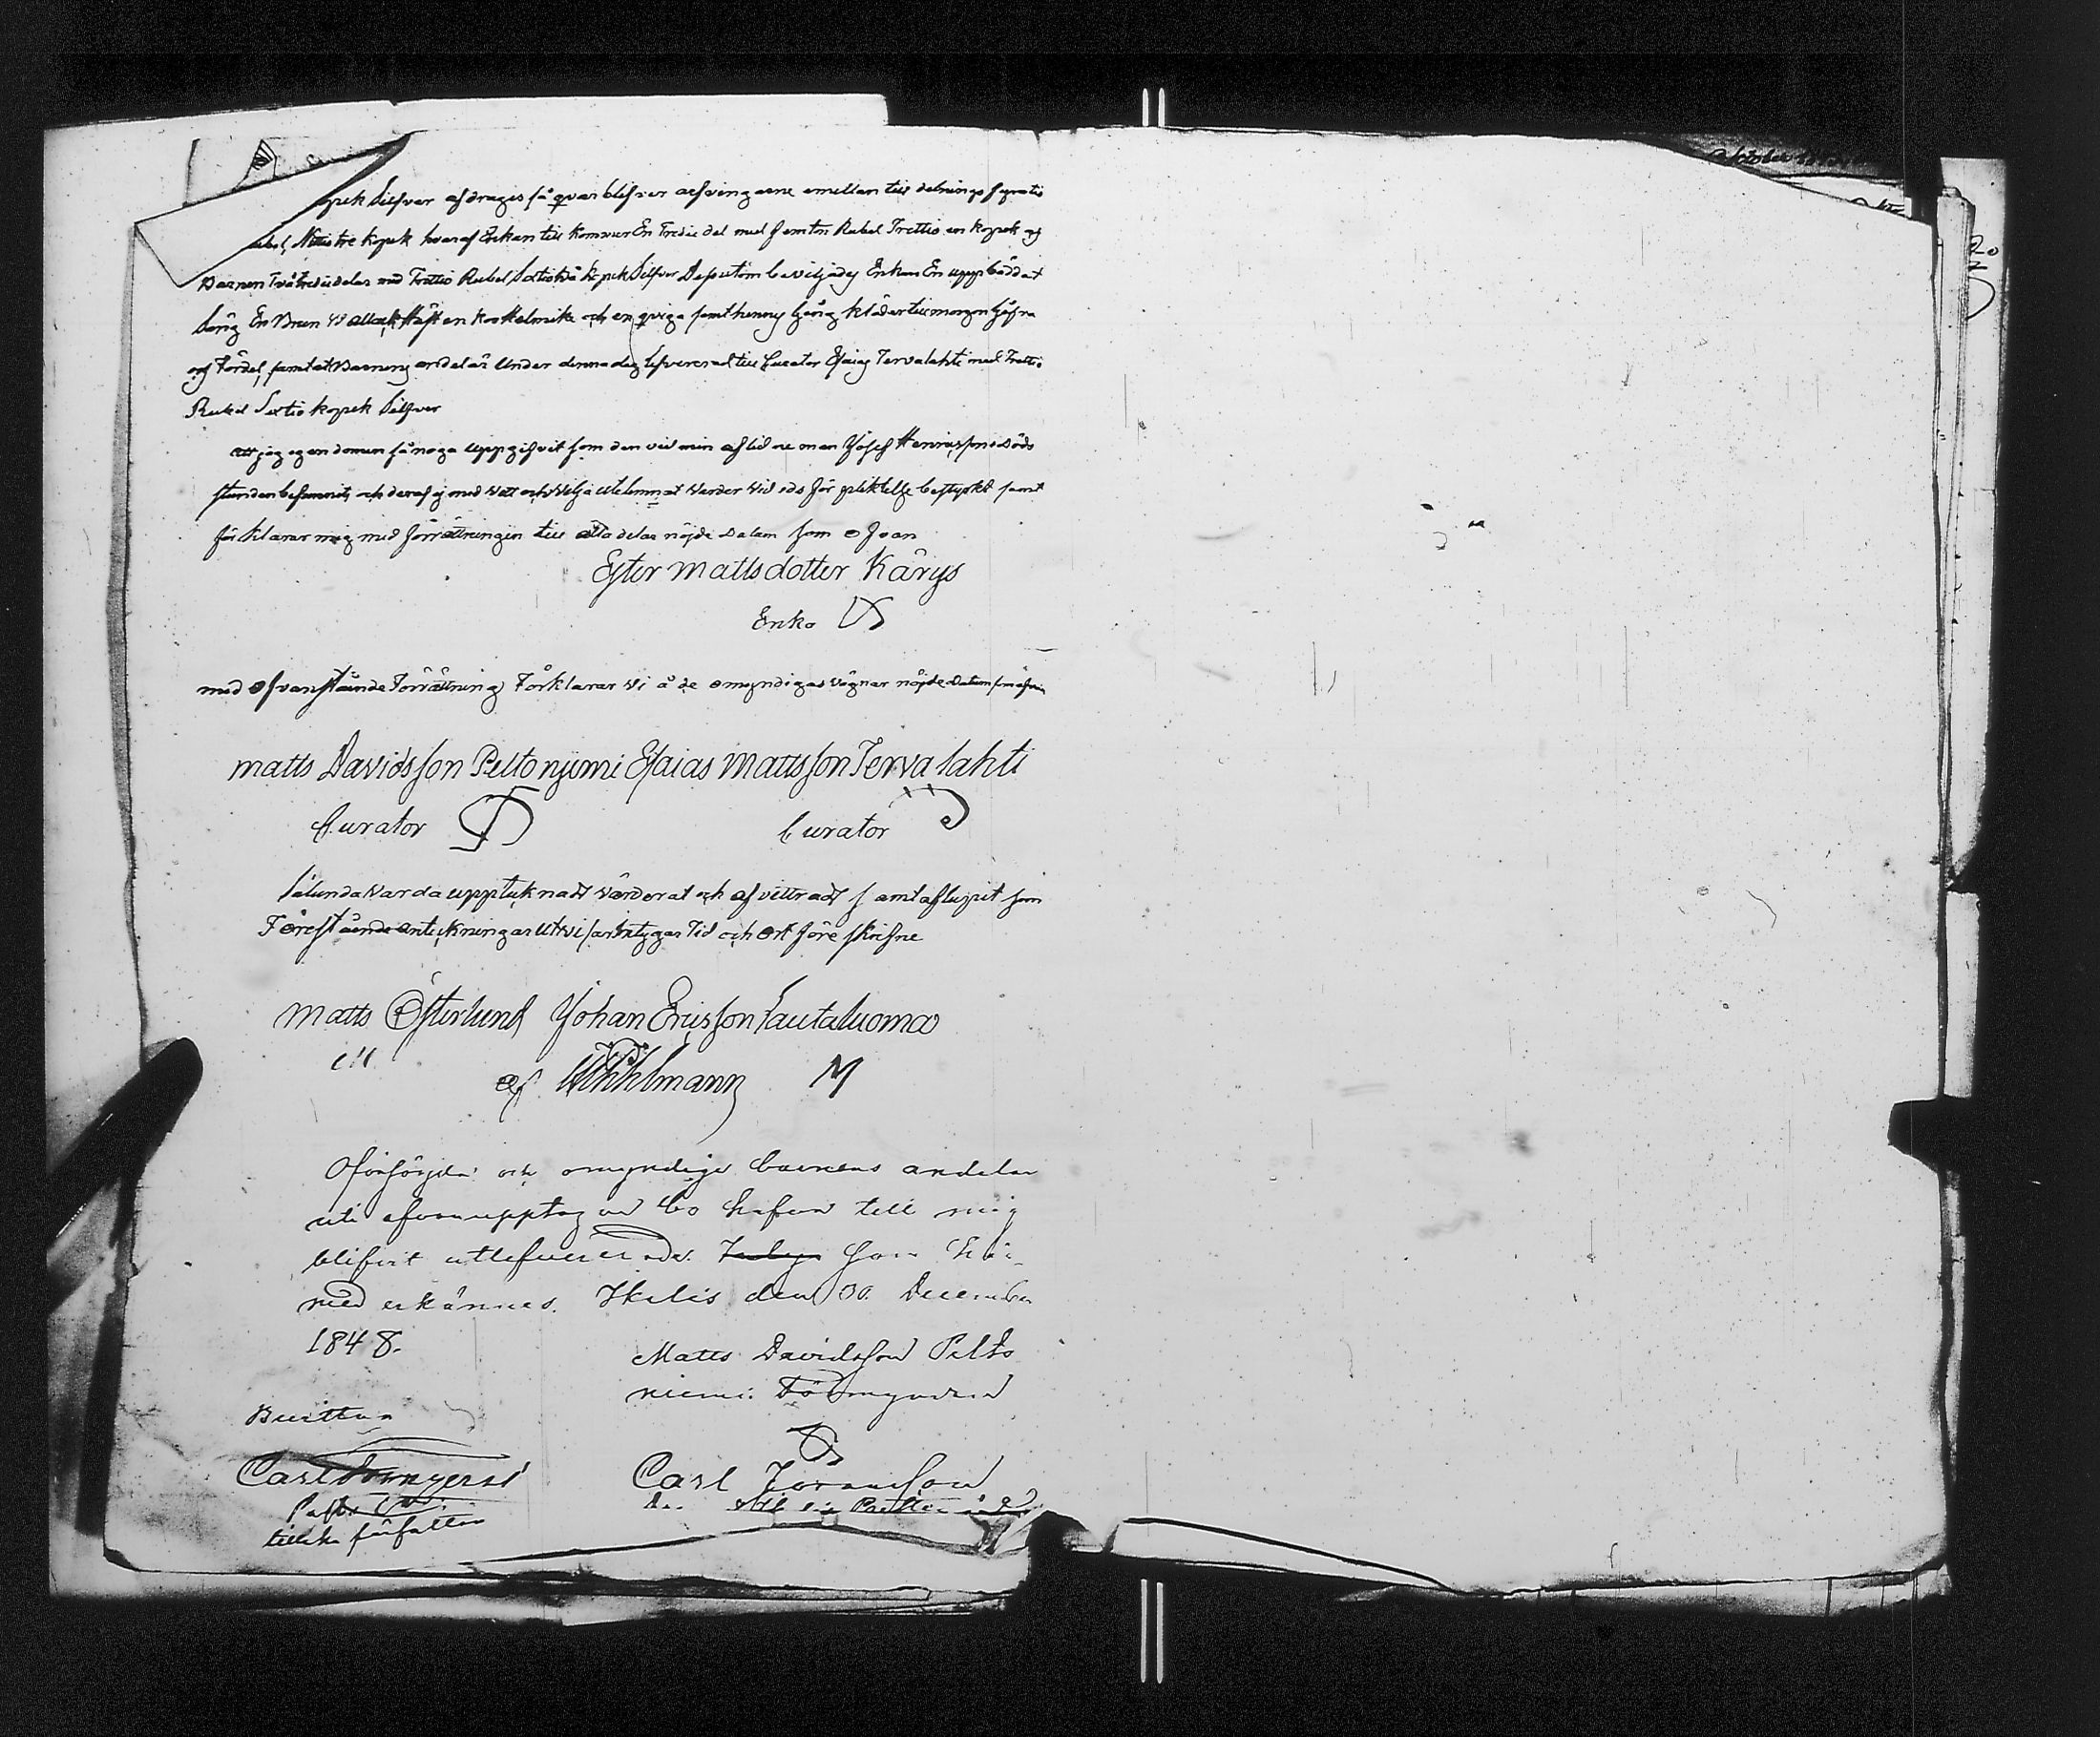 pek Silfver afdrages så qvar blifver arfvingarne emellan till delnings fyratio
Rubel, Nittitre kopek hvaraf Enkan till kommer En Tredie del med femton Rubel Trettio en kopek og
Barnen Två tredie delar med Trettio Rubel Sextiotvå kopek Silfver Desutom beviljades Enkan En uppbäddat
Säng En Brun Häst en ko Helmike och en qviga samt hennes gång kläder till morgon gåfva
og Fördel, samt at Barnens andel är Under denna dag lefvererad till Curator Esaias Tervalahti med Trettio
Rubel Sextio kopek Silfver
att jag egendomen så noga uppgifvit som den vid min aflidne man Josef Henrikssons döds
stunden befannits och deraf ej med vett och vilja utelemnat varder vid eds för pliktelse bestyrkt samt
för klarar mig med förrättningen till alla delar nöjde Datum som ofvan
Ester Mattsdotter Kärys
Enka
med Ofvanstäende Förrättning Förklarar Vi å de omyndigas vägnar nöjde Datum som ofvan
matts Davidsson Peltonjemi Esaias Mattsson Tervalahti
Curator Curator
Sålunda varda upptecknadt Värderat och afvittradt samt aflupit som
Föreståendeantekningar Utvisar Intygar Tid och Ort före skrifne
Matts Österlund Johan Ericsson Lautaluoma
af Wärdelmann M
Oförsörjda och omyndige barnens andelar
uti ofvanupptagna bo hafva till mig
blifvit utlefvererade som här-
med erkännes. Ikalis den 30 December
1848.
Matts Davidsson Pelto
niemi Förmyndare
Bevittna
Carl Carl
tillika